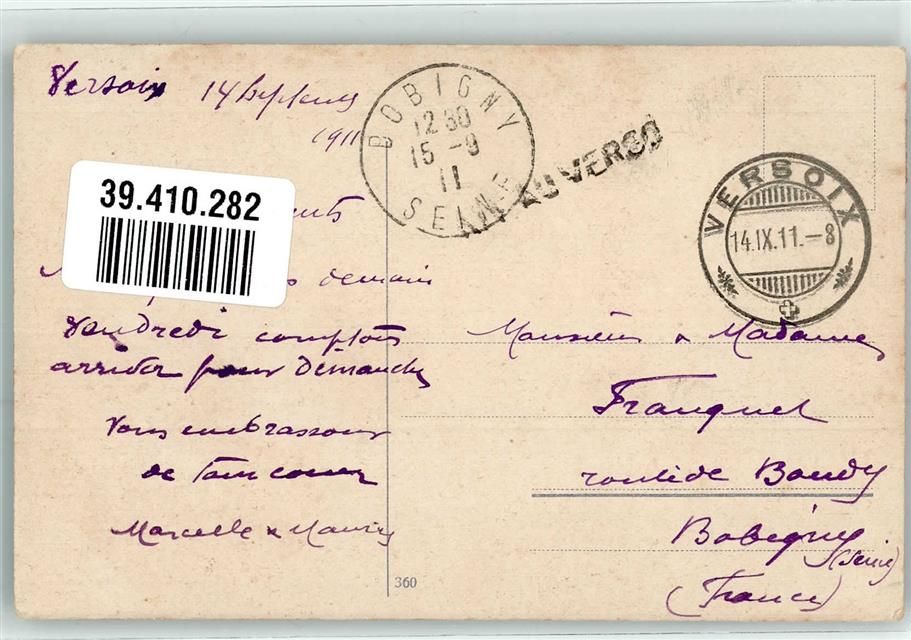 Versoix 14 Septemb
1911
39.410.282
demain
Vendredi comptons
arriver pour Dimanche
Vous embrassons
de tout coeur
Marcelle &
BOBIGNY
12 30
15 -9
11
SEINE
AU VERSO
VERSOIX
14.IX.11.-8
Monsieur & Madame
Franquet
route de Bondy
Bobigny
(Seine)
(France)
360